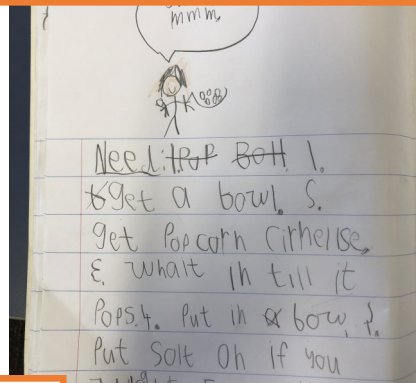 mmm,
Need: 1.
get a bowl. S.
get Popcorn Cirhelse.
E. whait in till it
Pops. 4. Put in bow.
Put Solt On if you